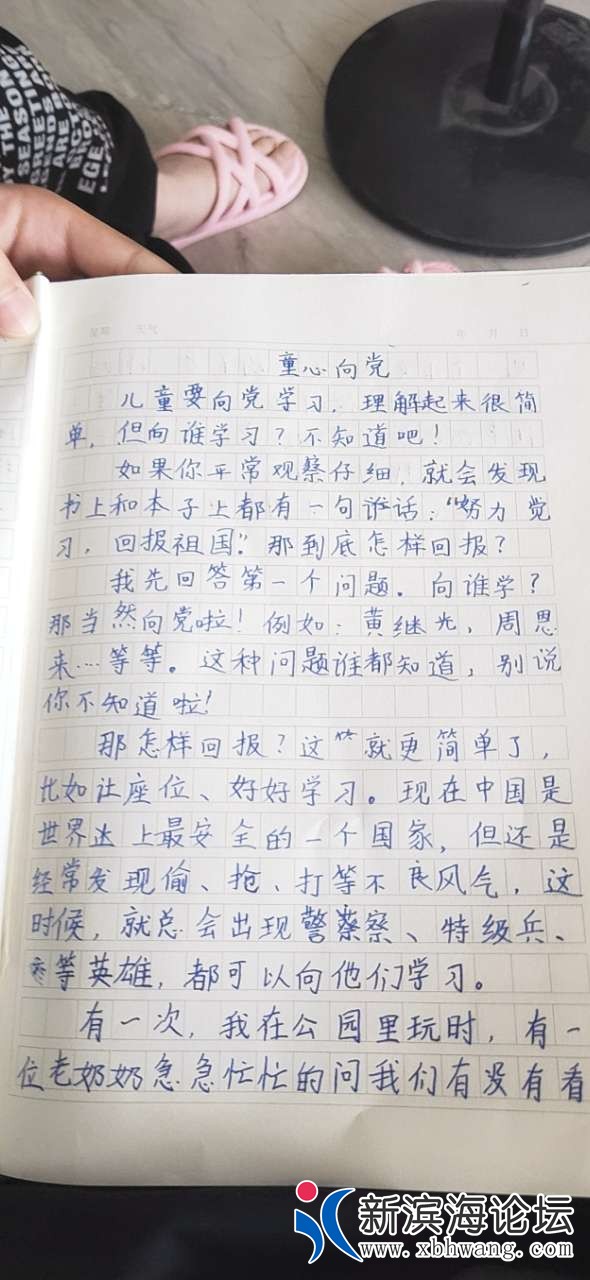 THE
SEASON
STREET
ENDS
ARE
EGE
星期 天气 年 月 日
童心向党
儿童要向党学习，理解起来很简
单，但向谁学习？不知道吧！
如果你平常观察仔细，就会发现
书上和本子上都有一句话：“努力党
习，回报祖国”。那到底怎样回报？
我先回答第一个问题。向谁学？
那当然向党啦！例如：黄继光，周恩
来……等等。这种问题谁都知道，别说
你不知道啦！
那怎样回报？这就更简单了，
比如让座位、好好学习。现在中国是
世界上最安全的一个国家，但还是
经常发现偷、抢、打等不良风气，这
时候，就总会出现警察、特级兵、
等英雄，都可以向他们学习。
有一次，我在公园里玩时，有一
位老奶奶急急忙忙的问我们有没有看
新滨海论坛
www.xbhwang.com